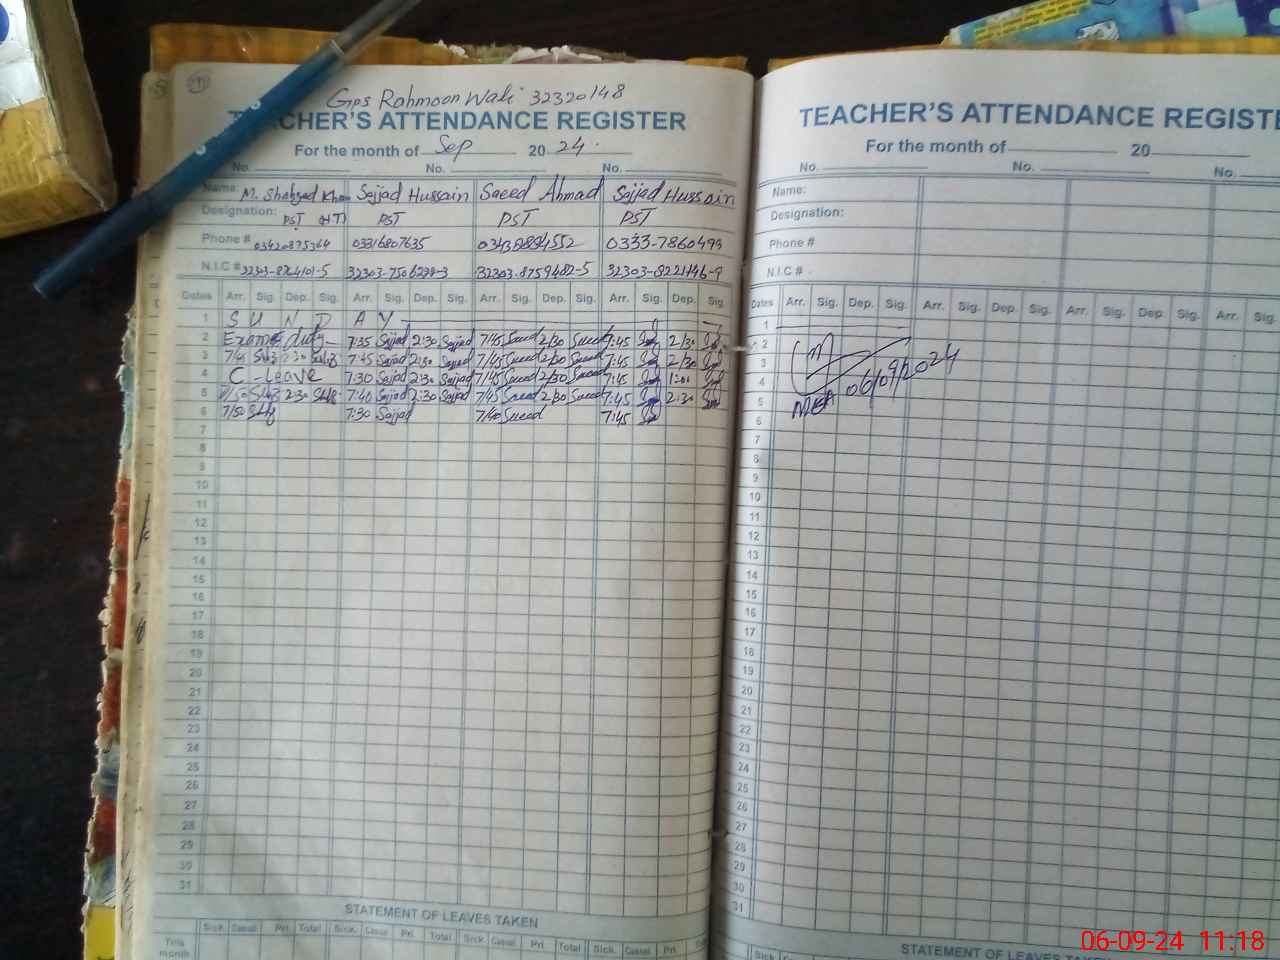 Gps Rahmoon Wali 32320148
TEACHER'S ATTENDANCE REGISTER
For the month of Sep 20 24.
No. No. No.
Name: M. Shahzad Khan Sajjad Hussain Saeed Ahmad Sajjad Hussain
Designation: PST (HT) PST PST PST
Phone # 03420875364 03316807635 0333-7860499
N.I.C # 32303-7506299-3 32303-8759482-5 32303-8221146-9
Dates Arr. Sig. Dep. Sig. Arr. Sig. Dep. Sig. Arr. Sig. Dep. Sig. Arr. Sig. Dep. Sig.
1 S U N D A Y
2 Exam duty 7:35 Sajjad 2:30 Sajjad 7/45 Saeed 2/30 Saeed 7:45 2/30
3 7/45 2:30 7:45 Sajjad 2:30 Sajjad 7/45 Saeed 2/30 Saeed 7:45 2/30
4 C-Leave 7:30 Sajjad 2:30 Sajjad 7/45 Saeed 2/30 Saeed 7:45 1:00
5 7/50 2:30 7:40 Sajjad 2:30 Sajjad 7/45 Saeed 2/30 Saeed 7:45 2:30
6 7/50 7:30 Sajjad 7/40 Saeed 7:45
7
8
9
10
11
12
13
14
15
16
17
18
19
20
21
22
23
24
25
26
27
28
29
30
31
STATEMENT OF LEAVES TAKEN
Sick Casual Pri. Total Sick Casual Pri. Total Sick Casual Pri. Total Sick Casual Pri.
This month
TEACHER'S ATTENDANCE REGISTE
For the month of 20
No. No. No.
Name:
Designation:
Phone #
N.I.C #
Dates Arr. Sig. Dep. Sig. Arr. Sig. Dep. Sig. Arr. Sig. Dep. Sig. Arr.
1
2
3
4
5
6
7
8
9
10
11
12
13
14
15
16
17
18
19
20
21
22
23
24
25
26
27
28
29
30
31
MEA 06/09/2024
STATEMENT OF LEAVES TAKEN
06-09-24 11:18